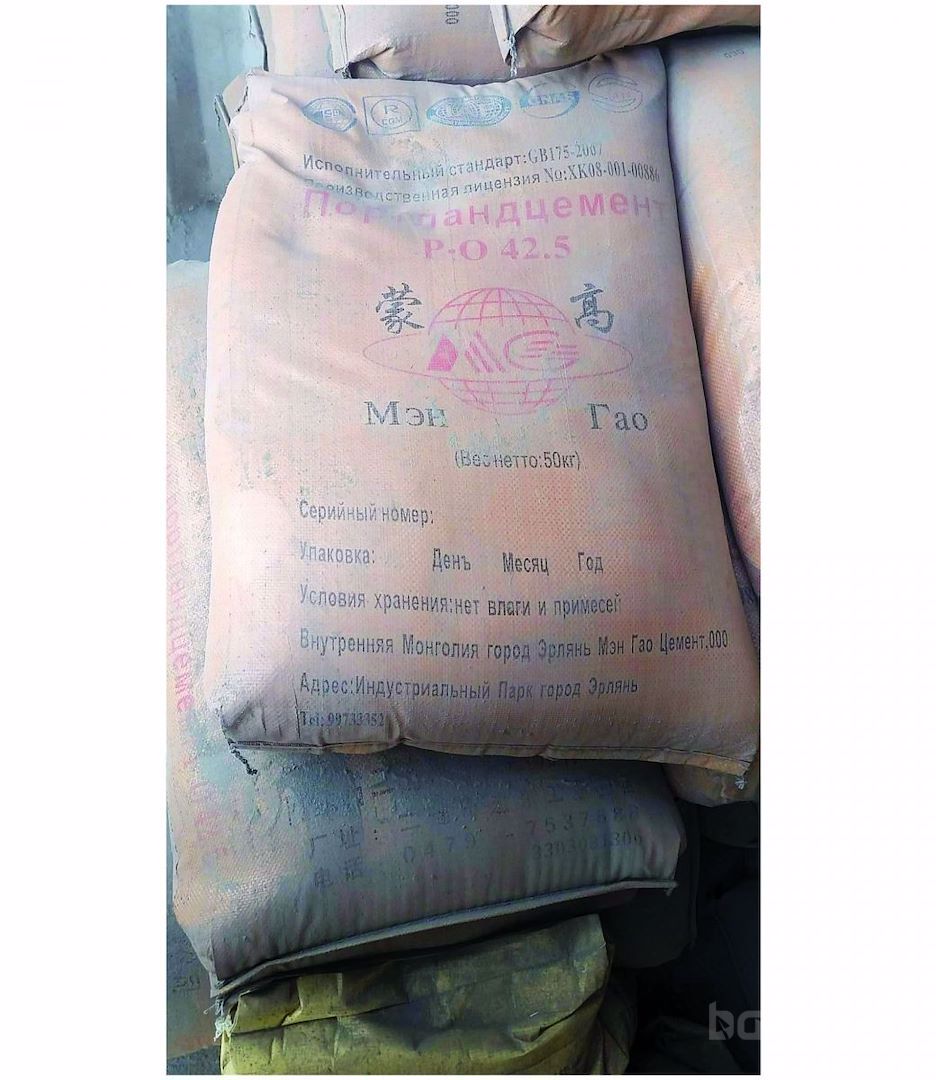 Исполнительный стандарт:GB175-2007
Производственная лицензия No:XK08-001-00886
Портландцемент
P·O 42.5
蒙 高
MG
Мэн Гао
(Вес нетто:50кг)
Серийный номер:
Упаковка: Денъ Месяц Год
Условия хранения:нет влаги и примесей
Внутренняя Монголия город Эрлянь Мэн Гао Цемент,000
Адрес:Индустриальный Парк город Эрлянь
Tel: 99733352
厂址
电话 0479-7537688